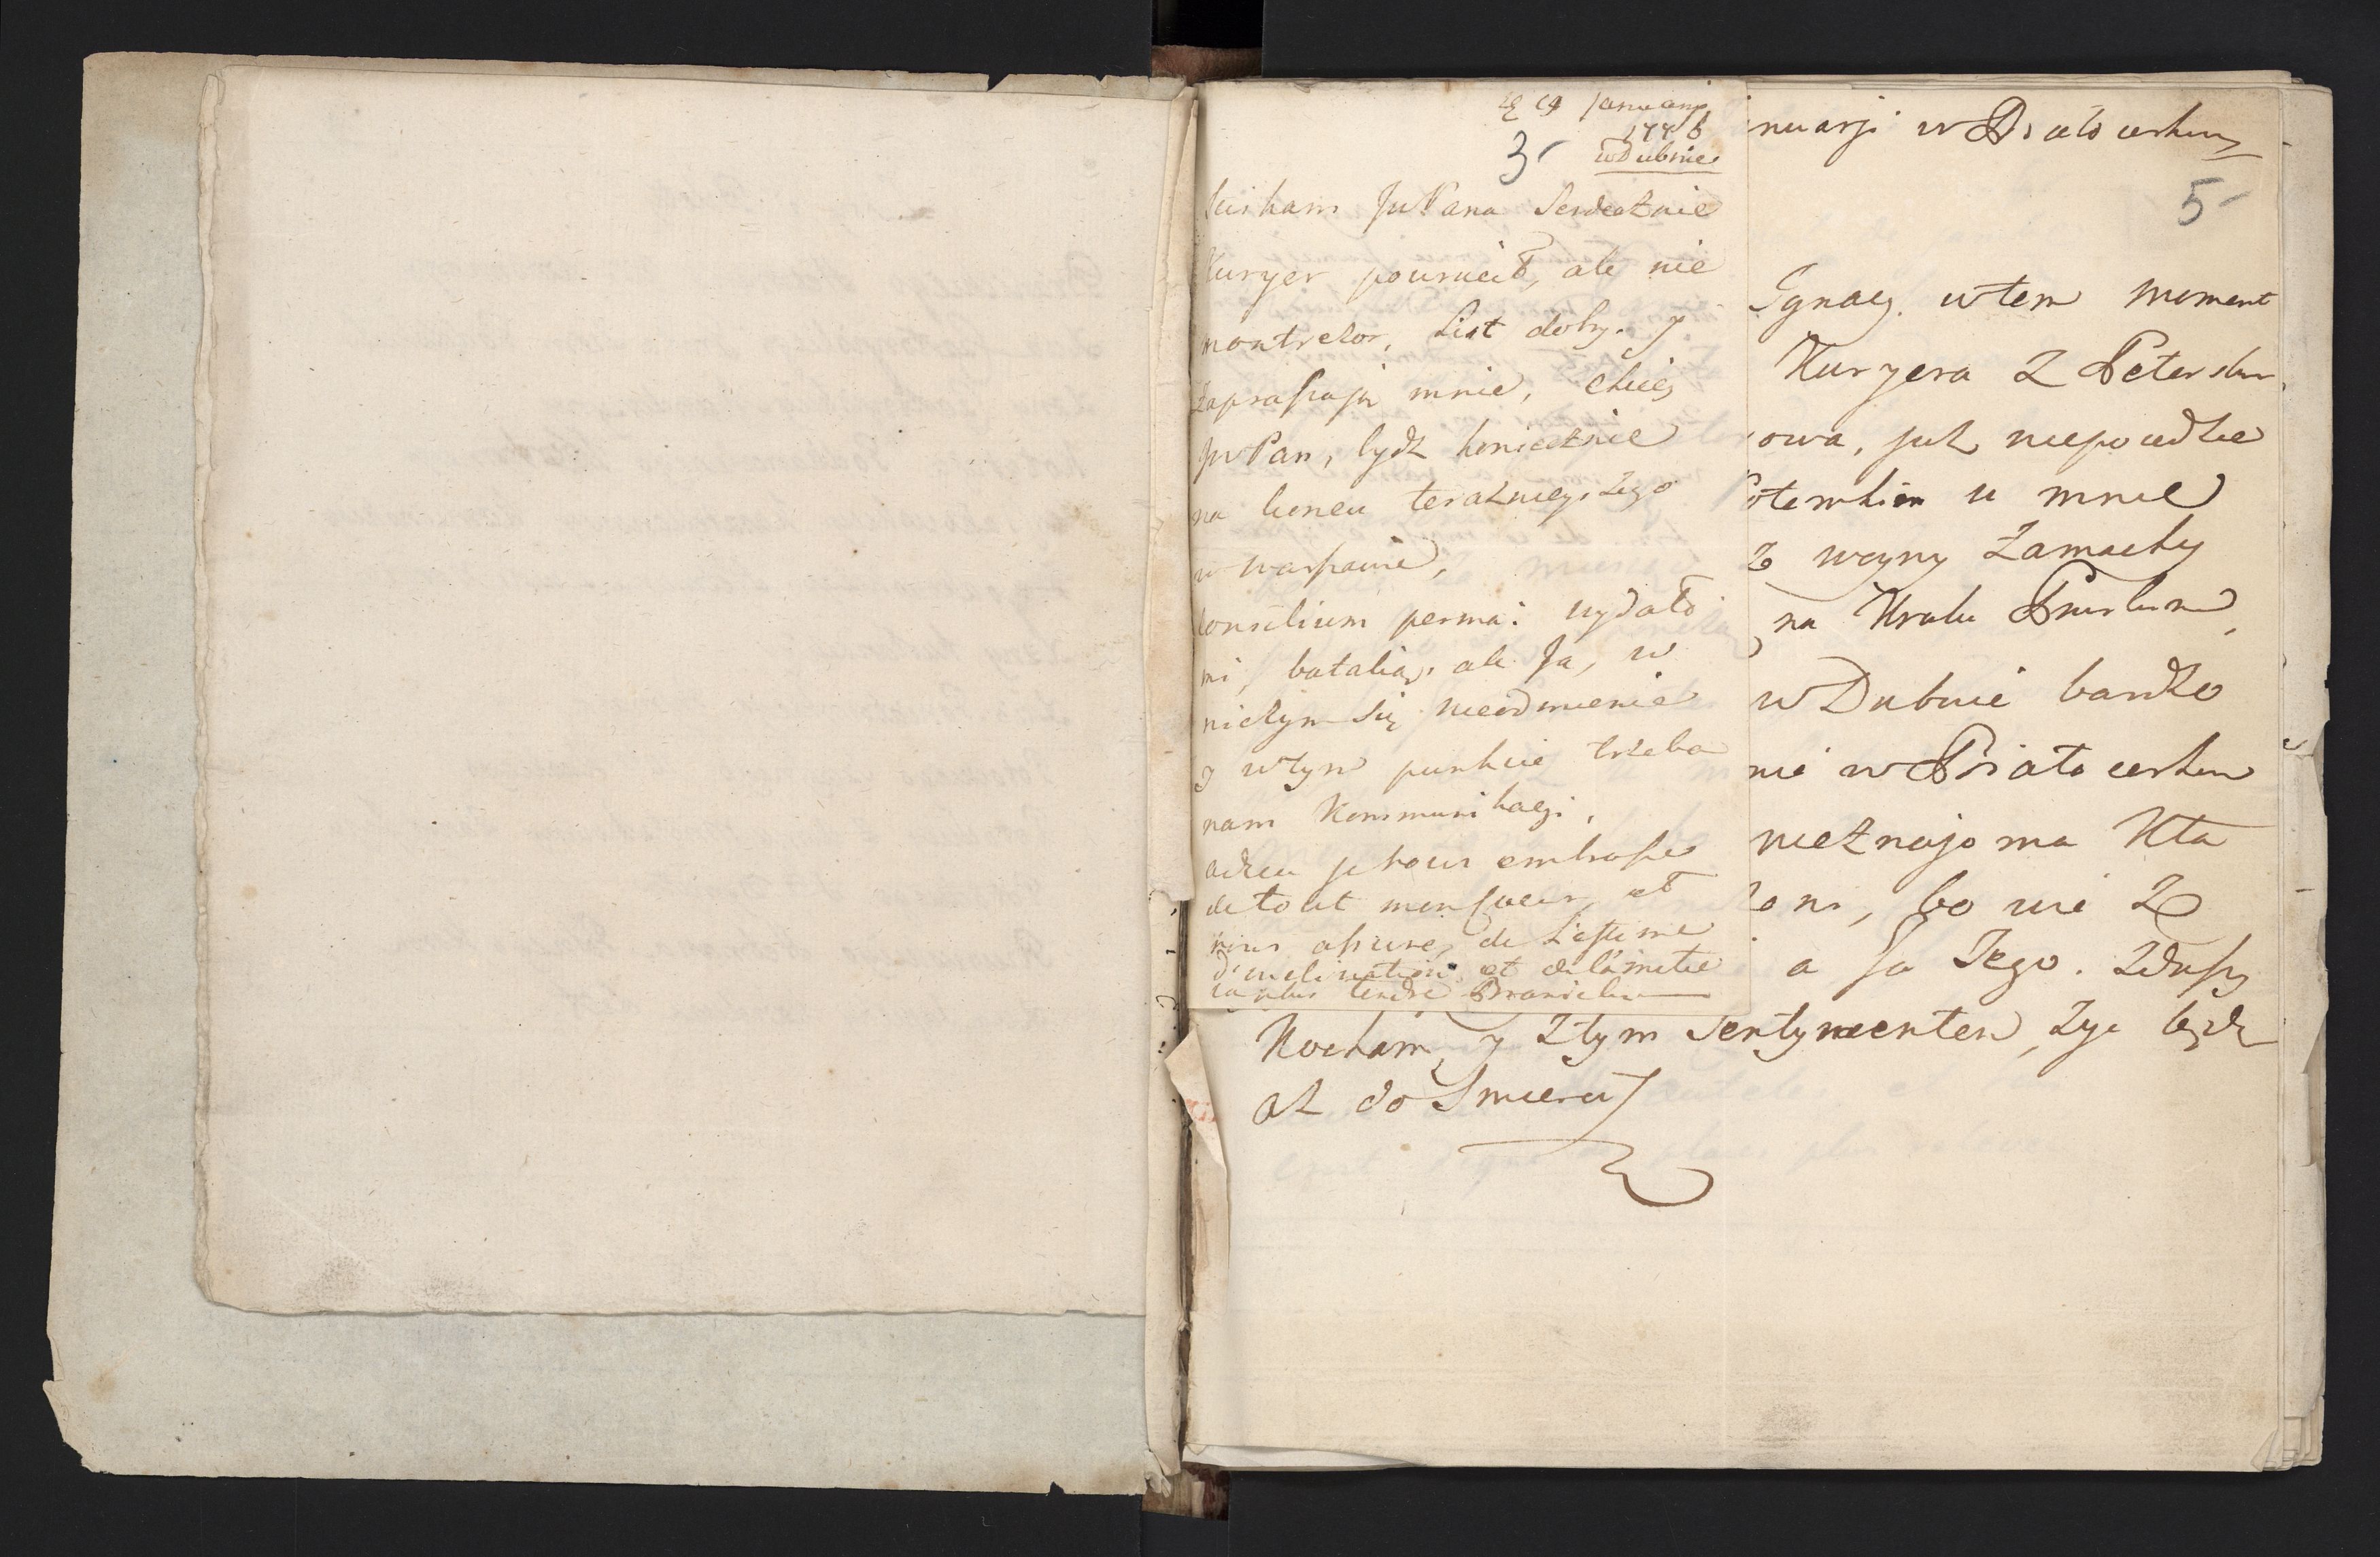 19 Januarij
1776
3 w Dubnie
sciskam JwPana Serdecznie
Kuryer powrucił, ale nie
montrezor, List dobry. y
zapraszają mnie, chciey
JwPan, bydz koniecznie
na koncu teraznieyszego
w warszawie,
konsilium perma: wydało
mi, batalią, ale Ja, w
niczym się nieodmienie
y wtym punkcie trzeba
nam Kommunikacyi,
adieu je vous embrasse
de tout mon coeur et
vous assure, de L'estime
d'inclination et de l'amitie
la plus tendre Branicki
nuarji w Białocerkwy
5
Ignacy. wtem moment
Kuryera z Petersbur
owa, juz niepoiedzie
Potemkin u mnie
z woyny Zamachy
na Krolu Pruskim,
w Dubnie bardzo
nie w Białocerkwi
nieznajoma Kta
bo wie Ze
a Ja Jego. zduszy
Kocham, y z tym Sentymentem, zyc będę
az do Smierci